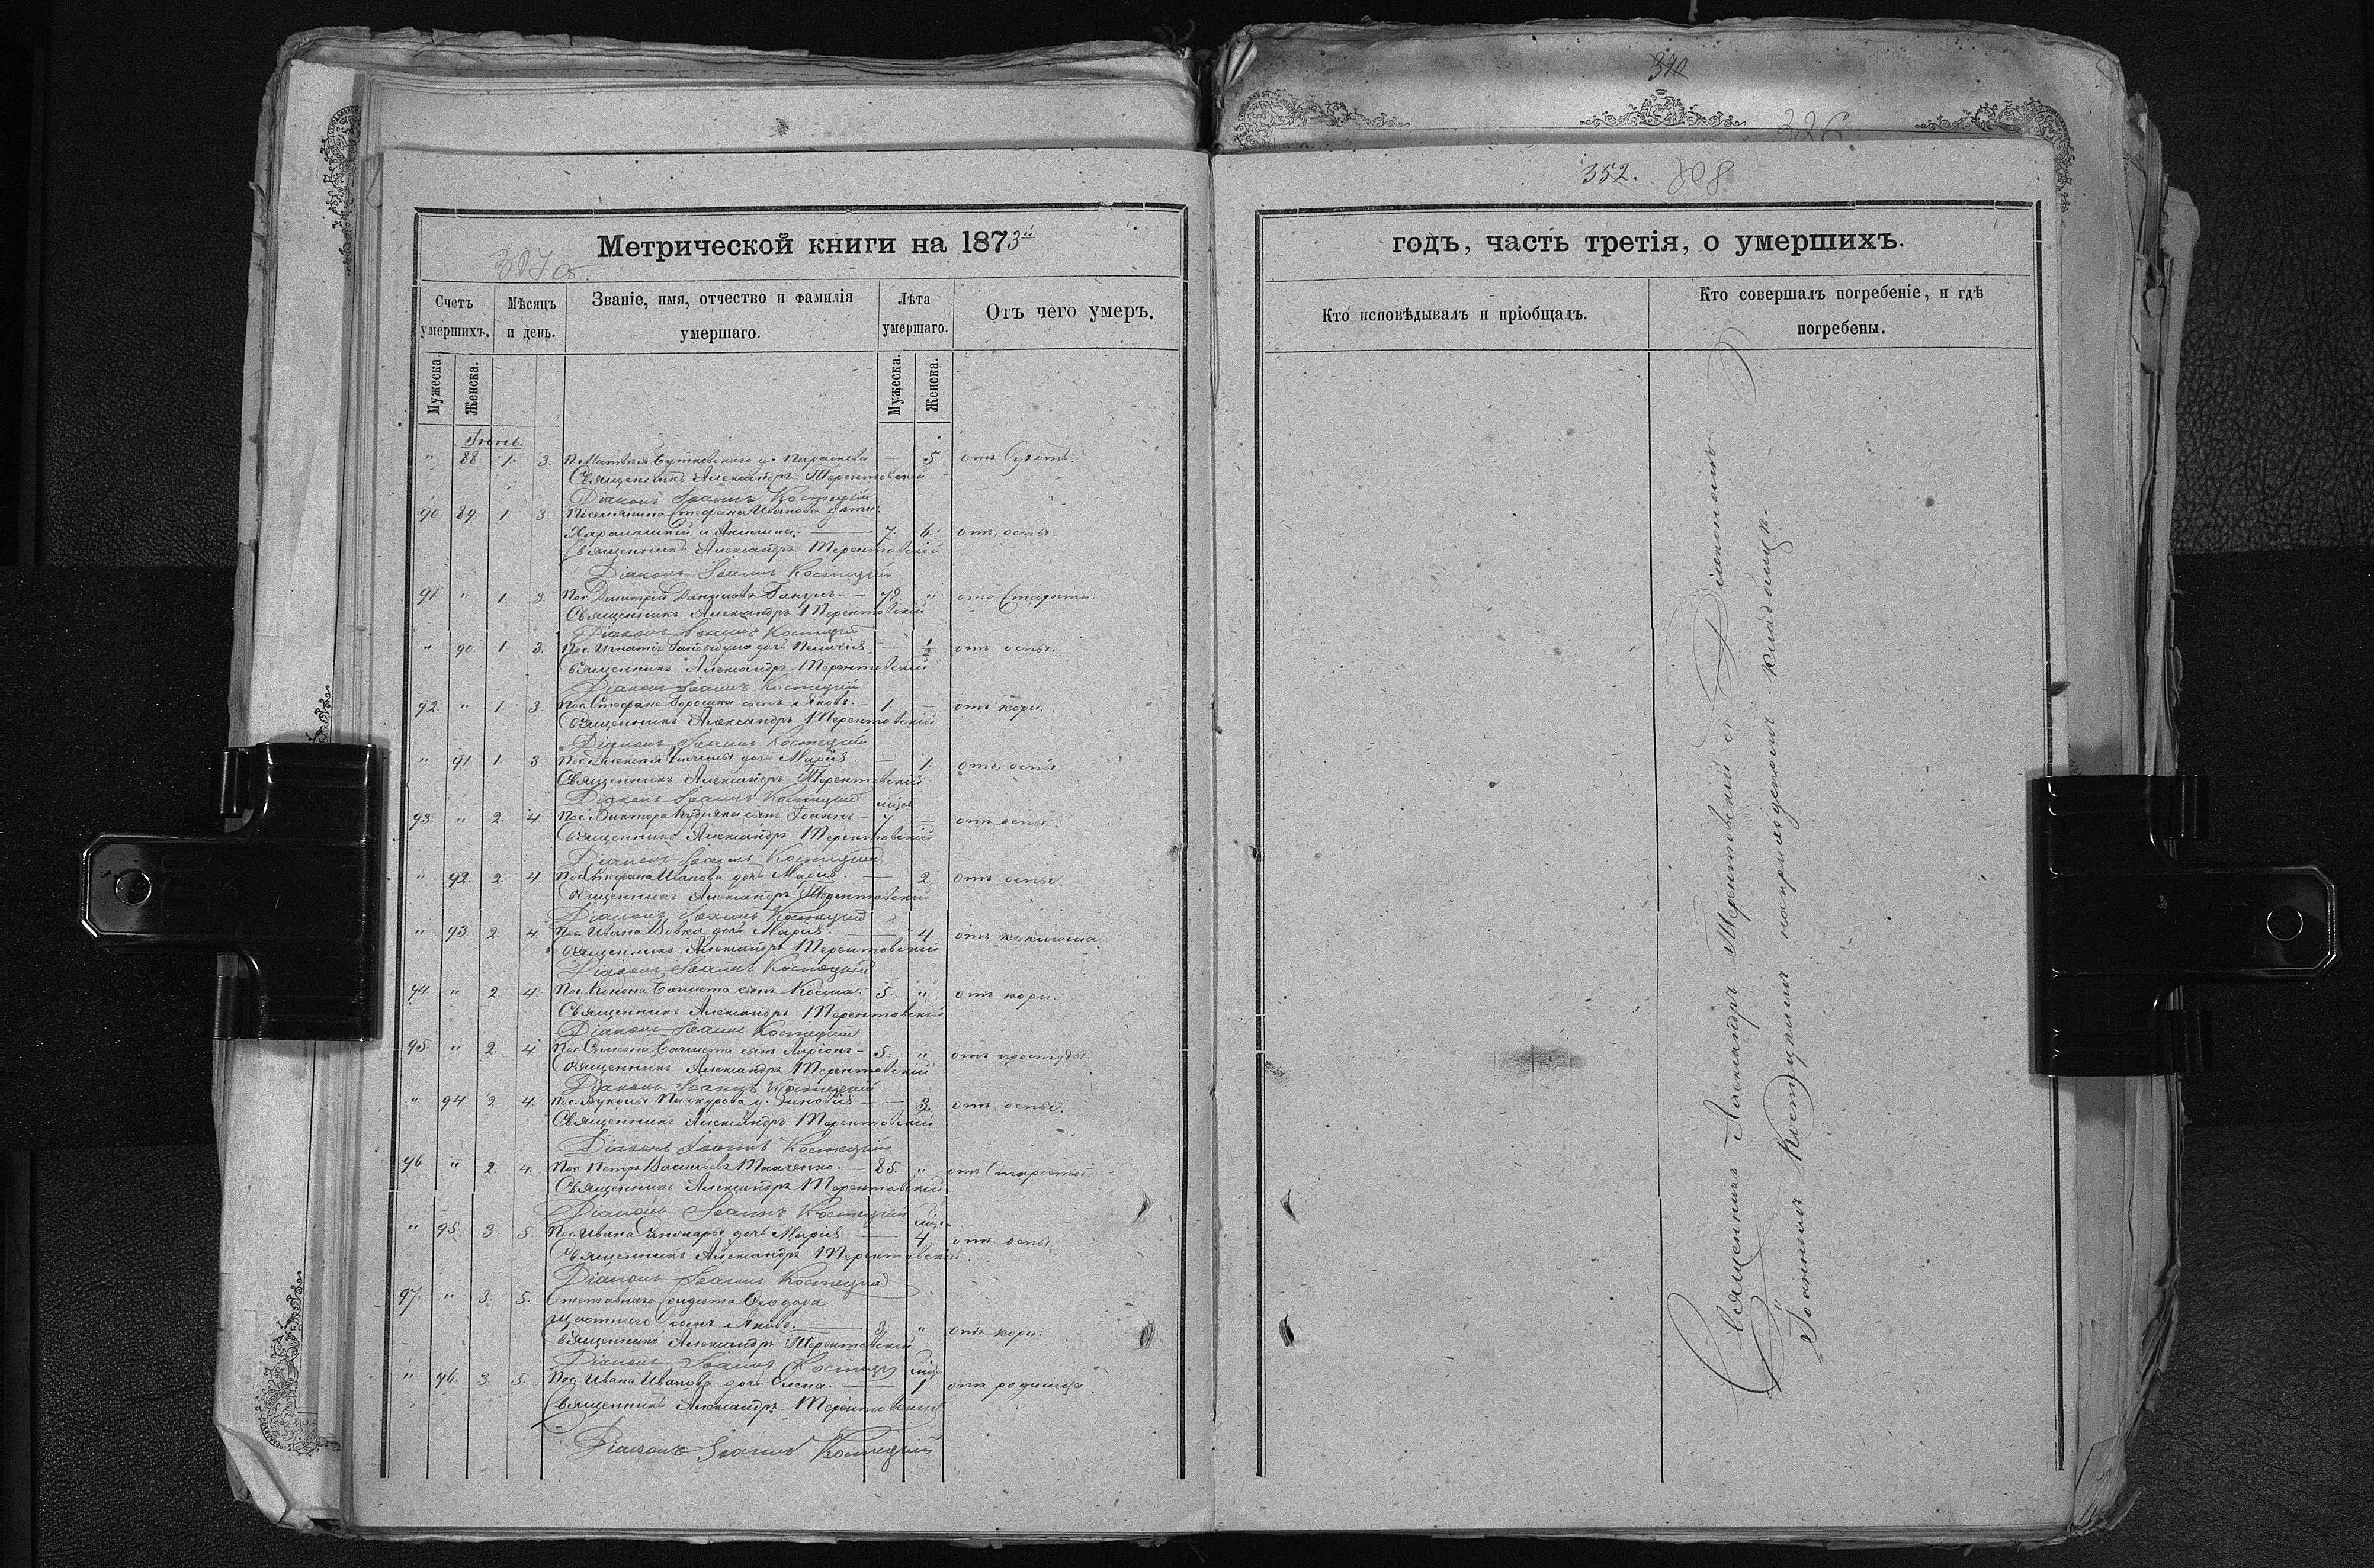 390
326
352. 308
Метрической книги на 1873й
307 об.
годъ, часть третія, о умершихъ.
Счетъ умершихъ.
Мѣсяцъ и день.
Званіе, имя, отчество и фамилія умершаго.
Лѣта умершаго.
Отъ чего умеръ.
Кто исповѣдывалъ и пріобщалъ.
Кто совершалъ погребеніе, и гдѣ погребены.
Мужеска. Женска.
Мужеска. Женска.
Іюнь.
" 88 1. 3. П. Матвѣя д. Параскева — 5 отъ
Священникъ Александръ Терентовскій
Діаконъ Іоаннъ Костецкій
90 89 1 3. Поселянина Стефана Иванова дѣти:
Харалампій и Акилина. 7. 6. отъ оспы.
Священникъ Александръ Терентовскій
Діаконъ Іоаннъ Костецкій
91 " 1. 3. Пос. Дмитрій Даниловъ — 78 " отъ Старости.
Священникъ Александръ Терентовскій
Діаконъ Іоаннъ Костецкій
" 90. 1 3. Пос. Игнатія дочь Пелагія — ½ отъ оспы.
Священникъ Александръ Терентовскій
Діаконъ Іоаннъ Костецкій
92 " 1 3. Пос. Стефана Горошка сынъ Яковъ. — 1 — отъ кори.
Священникъ Александръ Терентовскій
Діаконъ Іоаннъ Костецкій
" 91 1 3. Пос. Алексѣя дочь Марія — 1. отъ оспы
Священникъ Александръ Терентовскій
Діаконъ Іоаннъ Костецкій
93. " 2. 4 Пос. Виктора сынъ Іоаннъ — 7 — отъ оспы.
Священникъ Александръ Терентовскій
Діаконъ Іоаннъ Костецкій
" 92. 2. 4 Пос. Стефана Иванова дочь Марія. — 2 отъ оспы.
Священникъ Александръ Терентовскій
Діаконъ Іоаннъ Костецкій
" 93 2. 4. Пос. Ивана Вовка дочь Марія. — 4 отъ коклюша.
Священникъ Александръ Терентовскій
Діаконъ Іоаннъ Костецкій
94. " 2 4. Пос. Конона сынъ Косма. 5. " отъ кори.
Священникъ Александръ Терентовскій
Діаконъ Іоаннъ Костецкій
95. " 2. 4 Пос. сынъ Ларіонъ — 5. " отъ простуды.
Священникъ Александръ Терентовскій
Діаконъ Іоаннъ Костецкій
" 94 2. 4. Пос. д. Зиновія — 3. отъ оспы.
Священникъ Александръ Терентовскій
Діаконъ Іоаннъ Костецкій
96 " 2. 4. Пос. Петръ Васильевъ Ткаченко. — 85. " отъ Старости.
Священникъ Александръ Терентовскій
Діаконъ Іоаннъ Костецкій
" 95. 3. 5 Пос. Ивана дочь Марія — 4 отъ оспы.
Священникъ Александръ Терентовскій
Діаконъ Іоаннъ Костецкій
97. " 3. 5. Отставнаго Солдата Ѳеодора
сынъ Яковъ. — 3 " отъ кори.
Священникъ Александръ Терентовскій
Діаконъ Іоаннъ Костецкій
" 96. 3. 5. Пос. Ивана Иванова дочь Елена. — 1 отъ родимца.
Священникъ Александръ Терентовскій
Діаконъ Іоаннъ Костецкій
Священникъ Александръ Терентовскій съ Діакономъ
Іоанномъ Костецкимъ на приходскомъ кладбищѣ.